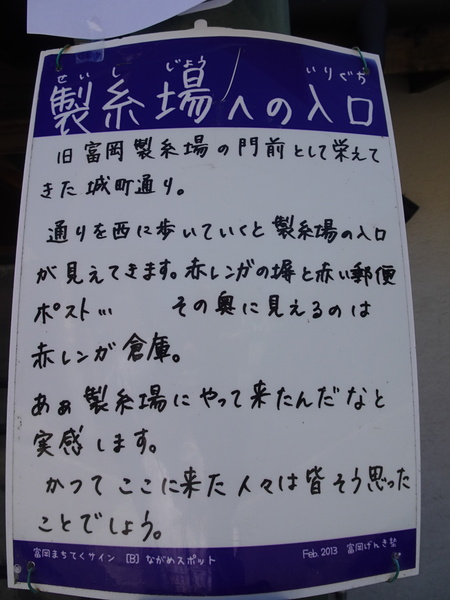 せいし じょう いりぐち
製糸場への入口
旧富岡製糸場の門前として栄えて
きた城町通り。
通りを西に歩いていくと製糸場の入口
が見えてきます。赤レンガの塀と赤い郵便
ポスト… その奥に見えるのは
赤レンガ倉庫。
あぁ製糸場にやって来たんだなと
実感します。
かつてここに来た人々は皆そう思った
ことでしょう。
富岡まちてくサイン [B] ながめスポット Feb. 2013 富岡げんき塾